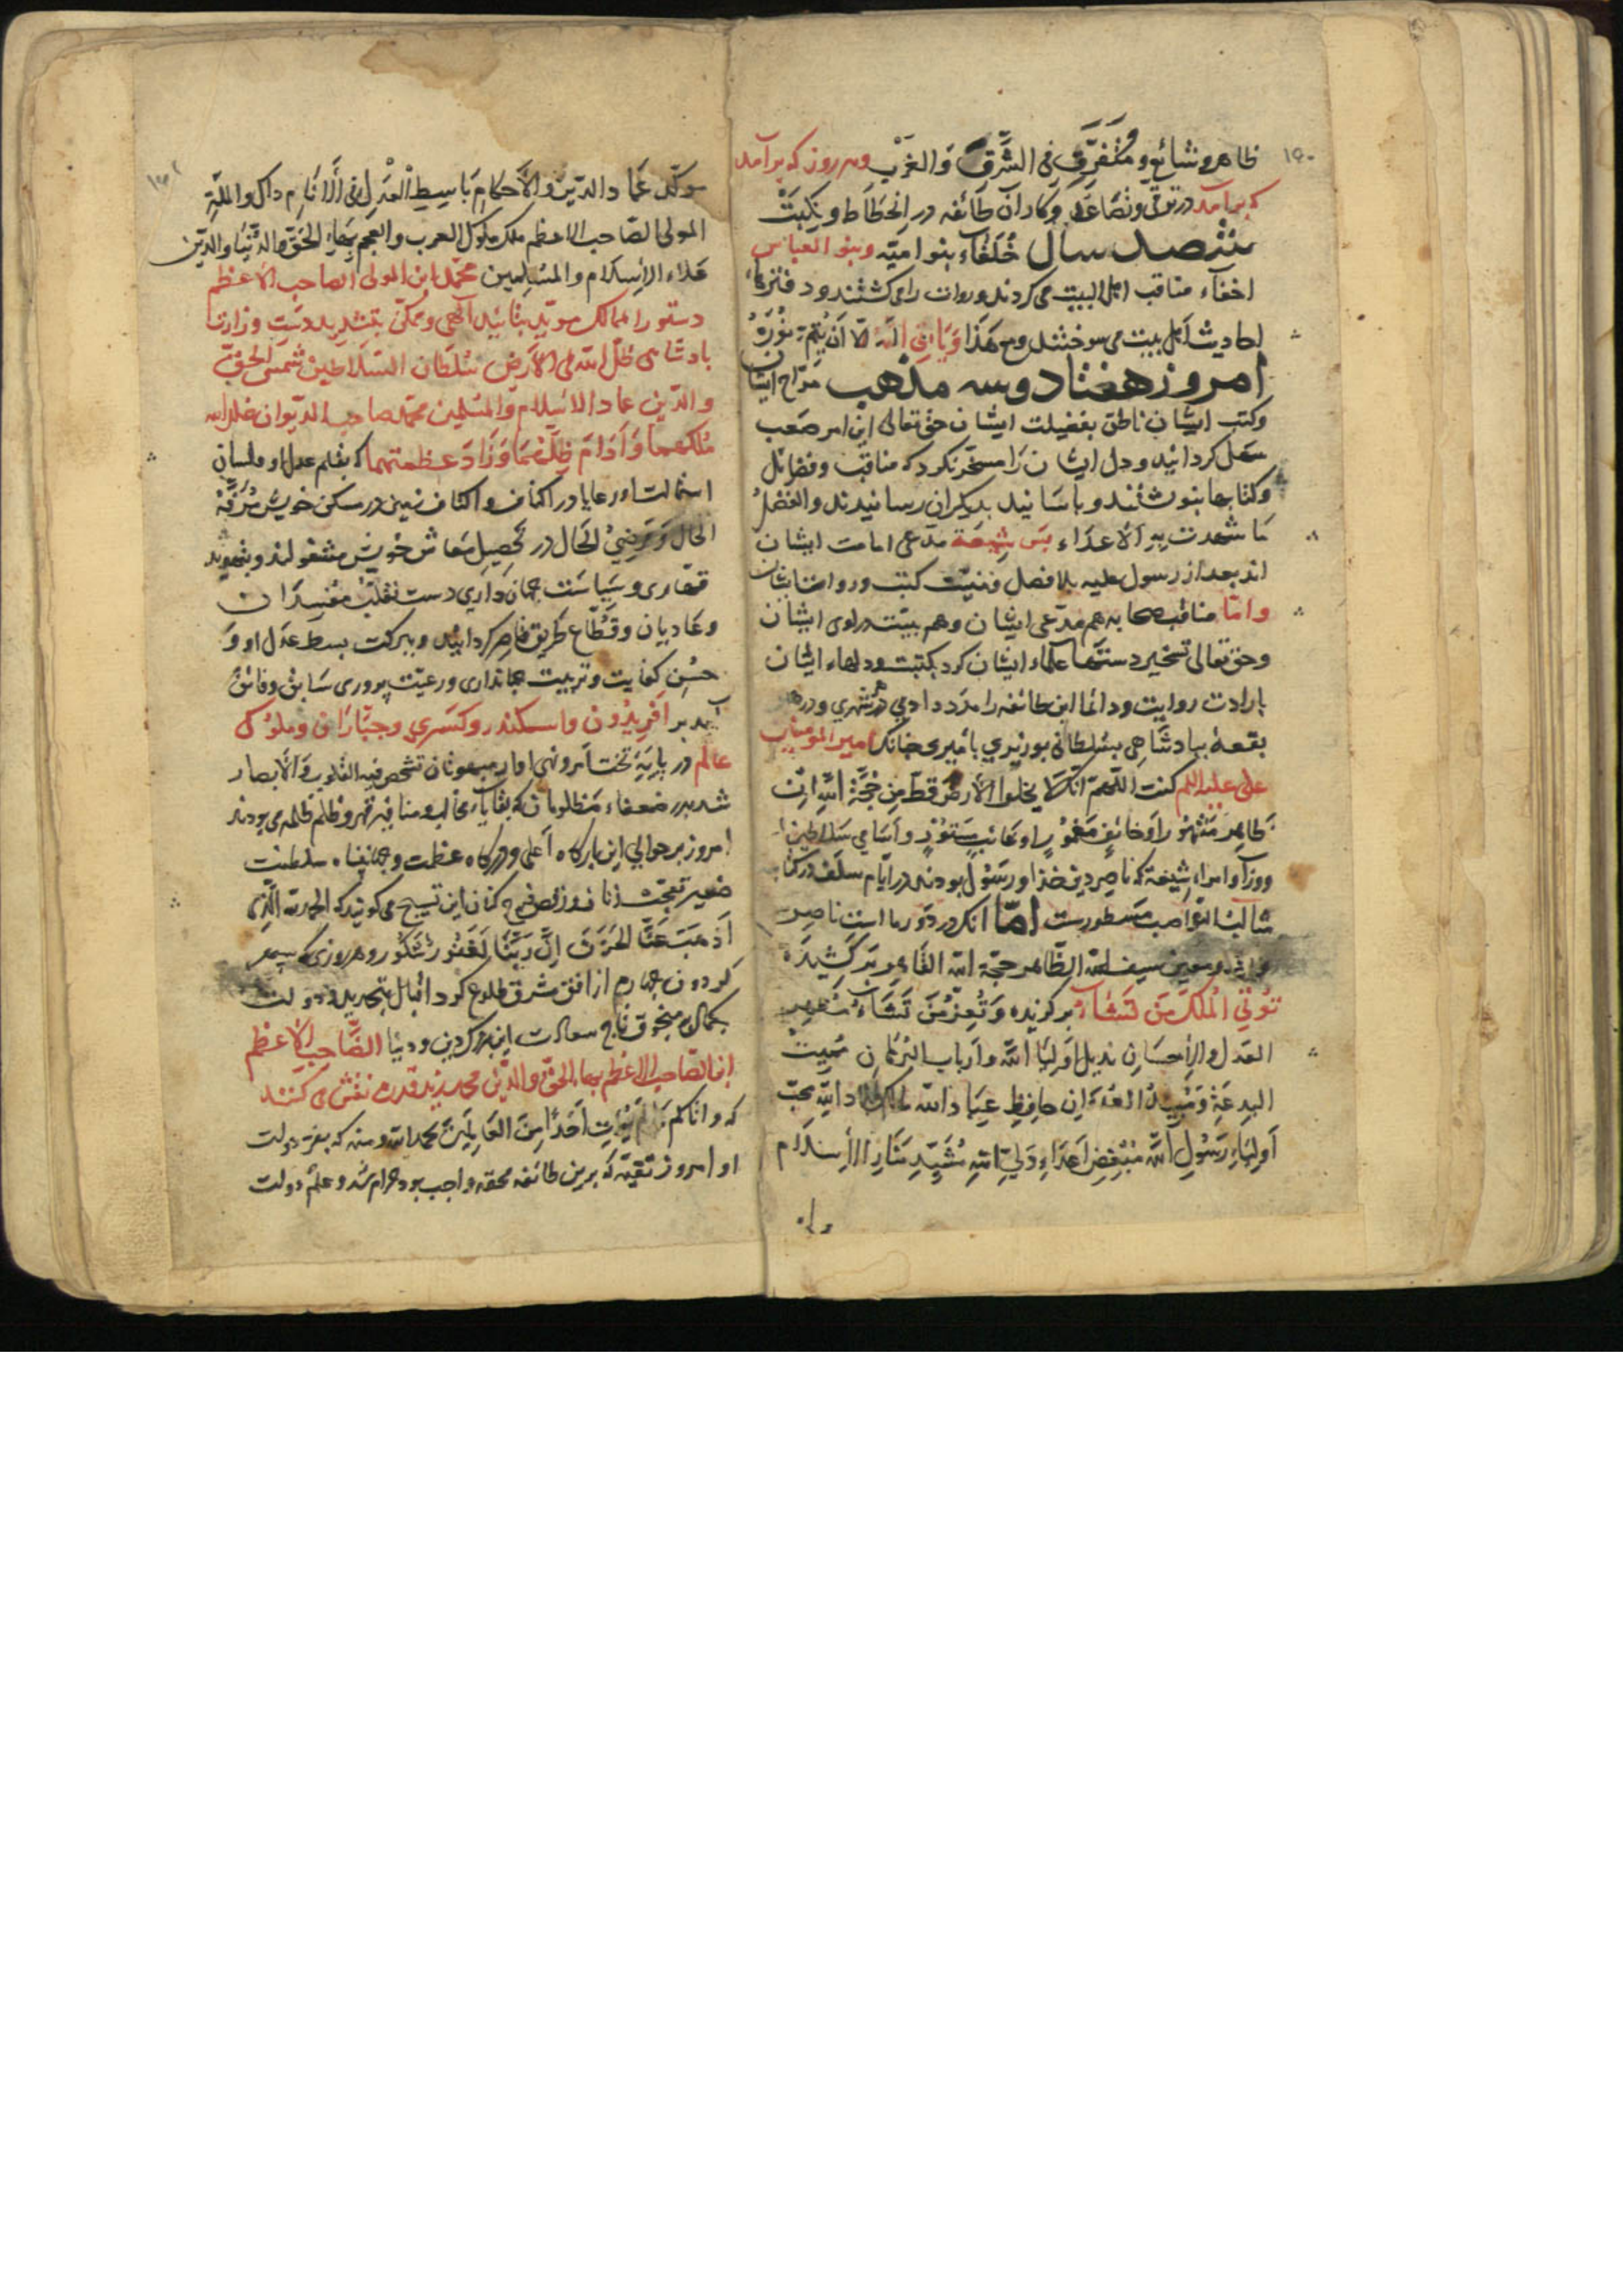 ۱۵۰
ظاهر و شائع و متفرق فی الشَّرق وَالغَرْب و هر روز که برآمد
که برآمد در ترقی و تصاعد و کار آن طائفه در انحطاط و نکبت
ششصد سال خُلَفَاء بنو امیّه و بنو العباس
اخفاء مناقب اهل البیت می کردند و روات را می کشتند و دفترهاء
احادیث اهل بیت می سوختند و مع هَذَا وَیَابَی اللّه الّا اَنْ یُتِمَّ نُوْرَهُ
امروز هفتاد و سه مذهب مدّاح ایشان
و کتب ایشان ناطق بفضیلت ایشان حق تعالی این امر صَعب
سهل کردانید و دل ایشان را مسخّر کرد که مناقب و فضائل
و کتابها بنوشتند و باسانید بدیکران رسانیدند والفضلُ
مَا شهدت بِهِ الاَعدَاء پس شِیعَه مدّعی امامت ایشان
اند بعد از رسول علیه بلا فصل و کتب و روات ایشان
و امّا مناقب صحابه هم مدّعی ایشان و هم بیّنت و راوی ایشان
و حق تعالی تسخیر دستهاء علماء ایشان کرد بکتبت و دلهاء ایشان
بارادت روایت و دائما این طائفه را مدد دادی در هر شهری و در هر
بقعهٔ بپادشاهی بسُلطانی بوزیری بامیری چنانک امیر المومنین
علی علیه السلم کفت اللّهمّ انّک لا یخلوا الاَرض قط مِن حُجَّة اللهِ اِمّا
ظَاهِر مَشْهُوْرٍ اَو خَائِفٍ مَغْمُوْرٍ او غائب مَسْتُوْرٍ و اَسَامی سَلاطین
و وزرا و امراء شیعَه که ناصِر دین خدا و رَسُوْل بودند در ایّام سلف در کتاب
مثالب النّواصب مسطورست امّا آنک در دَور ما است ناصر
و معین سیف الله الظّاهر حجّة الله القَاهر بَرکَشِیدَهٔ
تُوْتِی الْمُلکَ مَن تَشَاءُ برکزیده وَ تُعِزُّ مَن تَشَاءُ
العَدل والاِحسَان اَولیَا الله و اَرباب البُرهَان مُمِیت
البِدعَةِ وَ العُدوَانِ حافِظِ عِبَاد الله مالک بلاد الله محبّ
اَولِیَاءِ رَسُوْلِ الله مُبْغِض اَعدَاءِ وَلِیِّ اللهِ مُشَیِّدِ مَنَارِ الاِسلَام
و عماد الدّین وَ الاَحکام بَاسِطِ العَدل فی الاَنَام والملّةِ
المولی الصّاحب الاعظم ملک ملوک العرب والعجم بهاء الحَقّ والدّنیا والدّین
علاء الاسلام والمسلمین محمّد ابن المولی الصاحب الاعظم
دستور الممالک مویّد بتائید الهی و ممکّن بر دست وزارت
بادشاهی ظلّ الله فی الاَرض سُلطان السّلاطین شمس الحق
والدّین عماد الاسلام والمسلمین محمّد صاحب الدیوان خلّد الله
مُلکهما وَ اَدَامَ ظلّهُمَا وَ زَادَ عظمتهما که بقلم عدل او و لسان
استمالت او رعایا در اکناف و اکتاف زمین در مسکن خویش مرفّه
الحَال وَ مَرضِیُّ الحَال در تَحصِیل مَعاش خویش مشغولند و
قهّاری و سِیاسَت جهان داری دست تغلّب مُفسِدَان
و عَادیان و قُطّاع طَریق قاصر کردانید و ببرکت بسط عَدل او و
حُسْن کفایت و تربیت جهانداری و رعیّت پروری سَابق و فائق
آمد بر افریدُون و اسکندر و کسری و جبّاران و ملوک
عالم در پایهٔ تخت اَمر و نهی او تشخص فیه القلوب وَ الاَبصار
شد بدر ضعفاء مظلومان که بقایاء مخالب و مناقیر قهر و ظلم ظلمه می بودند
امروز بر حوالی این بارکاه اَعلی و درکاه عظمت و جهانپناه سلطنت
کنان این تسبیح می کویند که الحمد لله الّذی
اَذهَبَ عَنَّا الحَزَنَ اِنَّ رَبَّنَا لَغَفُور شَکُوْر و هر روزی که سپهر
کردون چهارم از افق مشرق طلوع کرد اقبال بتجدید دولت
بکمال منجوق تاج سعادت این دین و دنیا الصَّاحب الاَعظم
ابن الصّاحب الاعظم بهاء الحق والدّین محمد نقش می کنند
که و اتاکم مَا لَمْ یُوْتِ اَحَدًا مِنَ العَالَمِیْن بحمد الله و منه که بفرّ دولت
او امروز تقیّه که برین طائفه محقه واجب بود حرام شد و علَم دولت